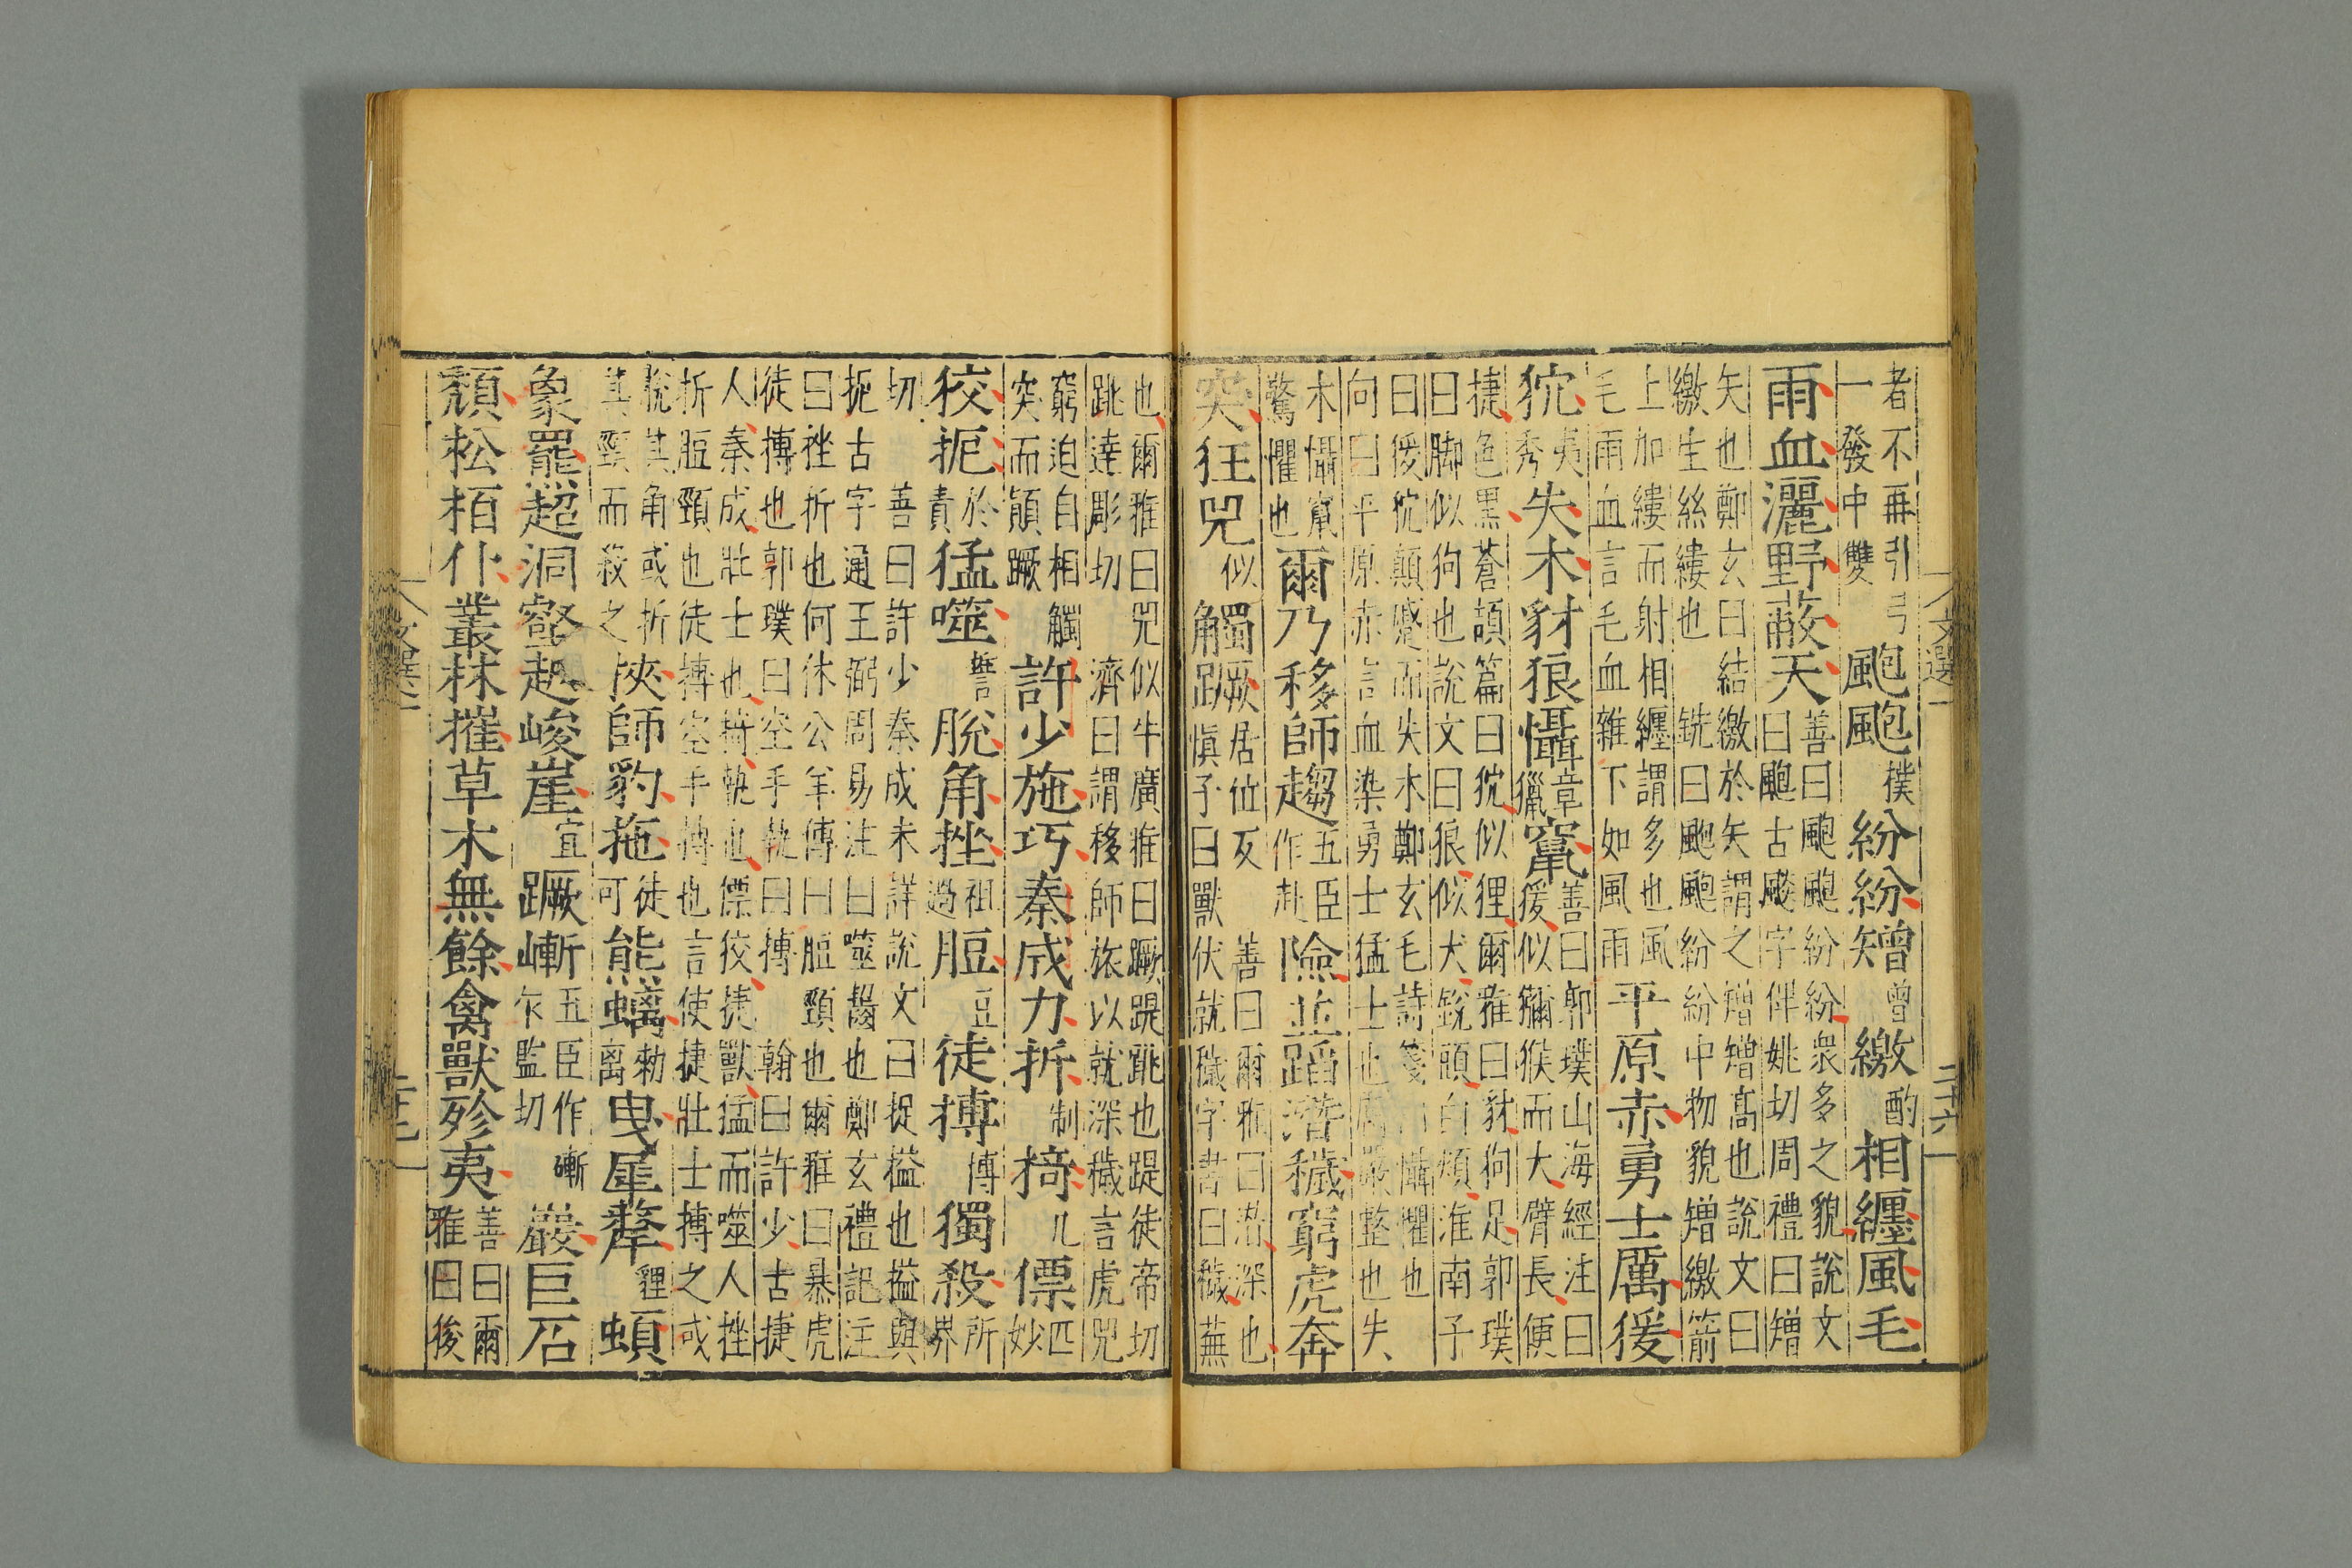 者不再引弓
一發中雙
颮颮撲紛紛矰曾繳酌相纏風毛
雨血灑野蔽天
善曰颮颮紛紛衆多之貌說文
曰颮古飈字伴姚切周禮曰矰
矢也鄭玄曰結繳於矢謂之矰矰髙也說文曰
繳生絲縷也 銑曰颮颮紛紛中物貌矰繳箭
上加縷而射相纏謂多也風
毛雨血言毛血雜下如風雨
平原赤勇士厲猨
狖夷秀失木豺狼懾章獵竄
善曰郭璞山海經注曰
猨似獼猴而大臂長便
捷色黑蒼頡篇曰狖似狸爾雅曰豺狗足郭璞
曰脚似狗也說文曰狼似犬銳頭白頰淮南子
曰猨狖顛蹙而失木鄭玄毛詩箋曰懾懼也
向曰平原赤言血染勇士猛士也厲嚴整也失
木懾竄
驚懼也
爾乃移師趨五臣作赴險並蹈潛穢窮虎奔
突狂兕似觸蹶居衛反
善曰爾雅曰潛深也
愼子曰獸伏就穢字書曰穢蕪
也爾雅曰兕似牛廣雅曰蹶踶跳也踶徒帝切
跳達彫切 濟曰謂移師旅以就深穢言虎兕
窮迫自相觸
突而顛蹶
許少施巧秦成力折制掎几僄匹妙
狡扼於責猛噬誓脫角挫祖過脰豆徒搏博獨殺所界
切 善曰許少秦成未詳說文曰捉搤也搤與
扼古字通王弼周易注曰噬齧也鄭玄禮記注
曰挫折也何休公羊傳曰脰頸也爾雅曰暴虎
徒搏也郭璞曰空手執曰搏 翰曰許少古捷
人秦成壯士也掎執也僄狡捷獸猛而噬人挫
折脰頸也徒搏空手搏也言使捷壯士搏之或
脫其角或折
其頸而殺之
挾師豹拖徒可熊螭勑离曳犀犛貍頓
象羆超洞壑越峻崖宜蹶嶄五臣作嶃乍監切巖巨石
頹松栢仆叢林摧草木無餘禽獸殄夷
善曰爾
雅曰後
文選一 二十六
文選一 二十七